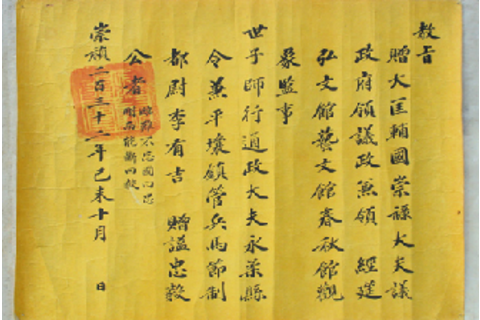 教旨
贈大匡輔國崇祿大夫議
政府領議政兼領 經筵
弘文館藝文館春秋館觀
象監事
世子師行通政大夫永柔縣
令兼平壤鎮管兵馬節制
都尉李有吉 贈諡忠毅
公者
臨難不忘國曰忠
剛而能斷曰毅
崇禎二百三十二年己未十月 日